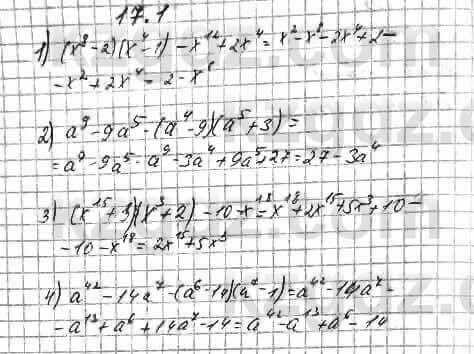 17.1
1) (x⁸-2)(x⁴-1)-x¹²+2x⁴=x²-x⁸-2x⁴+2-
-x²+2x⁴=2-x⁸
2) a⁹-9a⁵-(a⁴-9)(a⁵+3)=
=a⁹-9a⁵-a⁹-3a⁴+9a⁵+27=27-3a⁴
3) (x¹⁵+3)(x³+2)-10-x¹⁸=x¹⁸+2x¹⁵+5x³+10-
-10-x¹⁸=2x¹⁵+5x³
4) a⁴²-14a⁷-(a⁶-14)(a⁷-1)=a⁴²-14a⁷-
-a¹³+a⁶+14a⁷-14=a⁴²-a¹³+a⁶-14